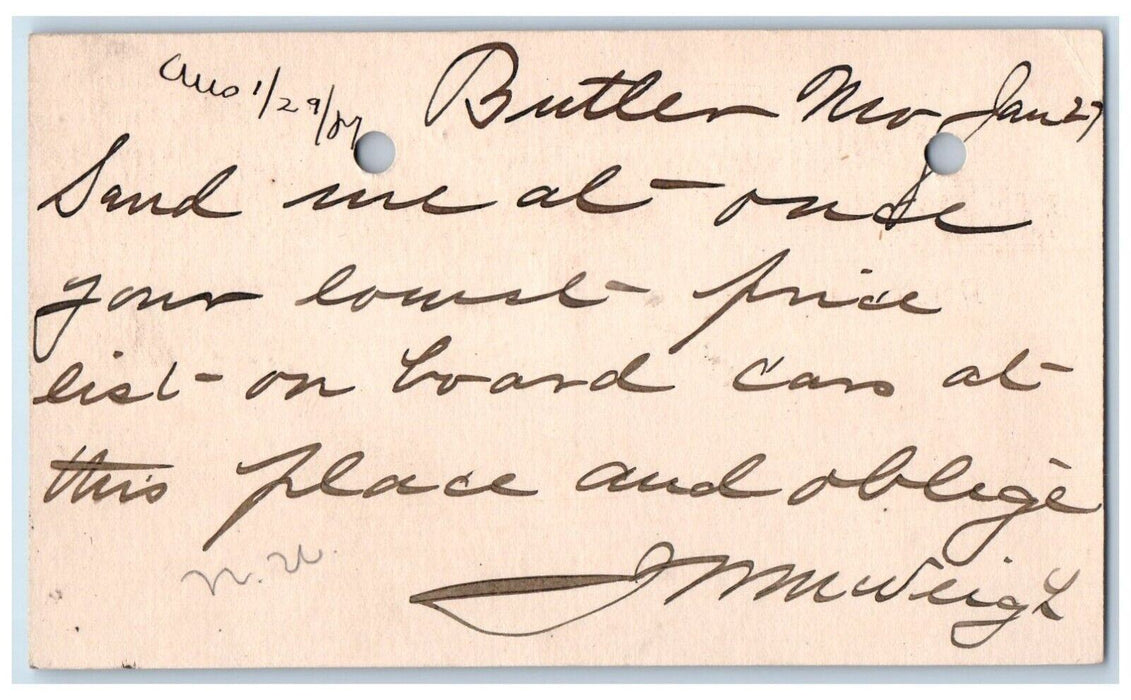 Ans 1/29/87
Butler Mo Jan 27
Send me at once
your lowest price
list on board cars at
this place and oblige